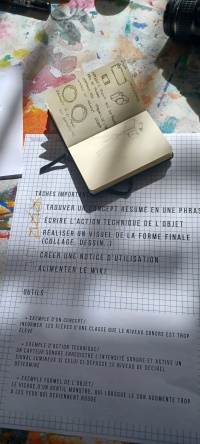 TÂCHES IMPORTAN
TROUVER UN CONCEPT RÉSUMÉ EN UNE PHRAS
ÉCRIRE L'ACTION TECHNIQUE DE L'OBJET
RÉALISER UN VISUEL DE LA FORME FINALE
(COLLAGE, DESSIN..)
CRÉER UNE NOTICE D'UTILISATION
ALIMENTER LE WIKI
OUTILS
• EXEMPLE D'UN CONCEPT/
INFORMER LES ÉLÈVES D'UNE CLASSE QUE LE NIVEAU SONORE EST TROP
ÉLEVÉ
• EXEMPLE D'ACTION TECHNIQUE/
UN CAPTEUR SONORE ENREGISTRE L'INTENSITÉ SONORE ET ACTIVE UN
SIGNAL LUMINEUX SI CELUI CI DÉPASSE LE NIVEAU DE DÉCIBEL
DÉTERMINÉ
• EXEMPLE FORMEL DE L'OBJET/
LE VISAGE D'UN GENTIL MONSTRE, QUI LORSQUE LE SON AUGMENTE TROP
A LES YEUX QUI DEVIENNENT ROUGE